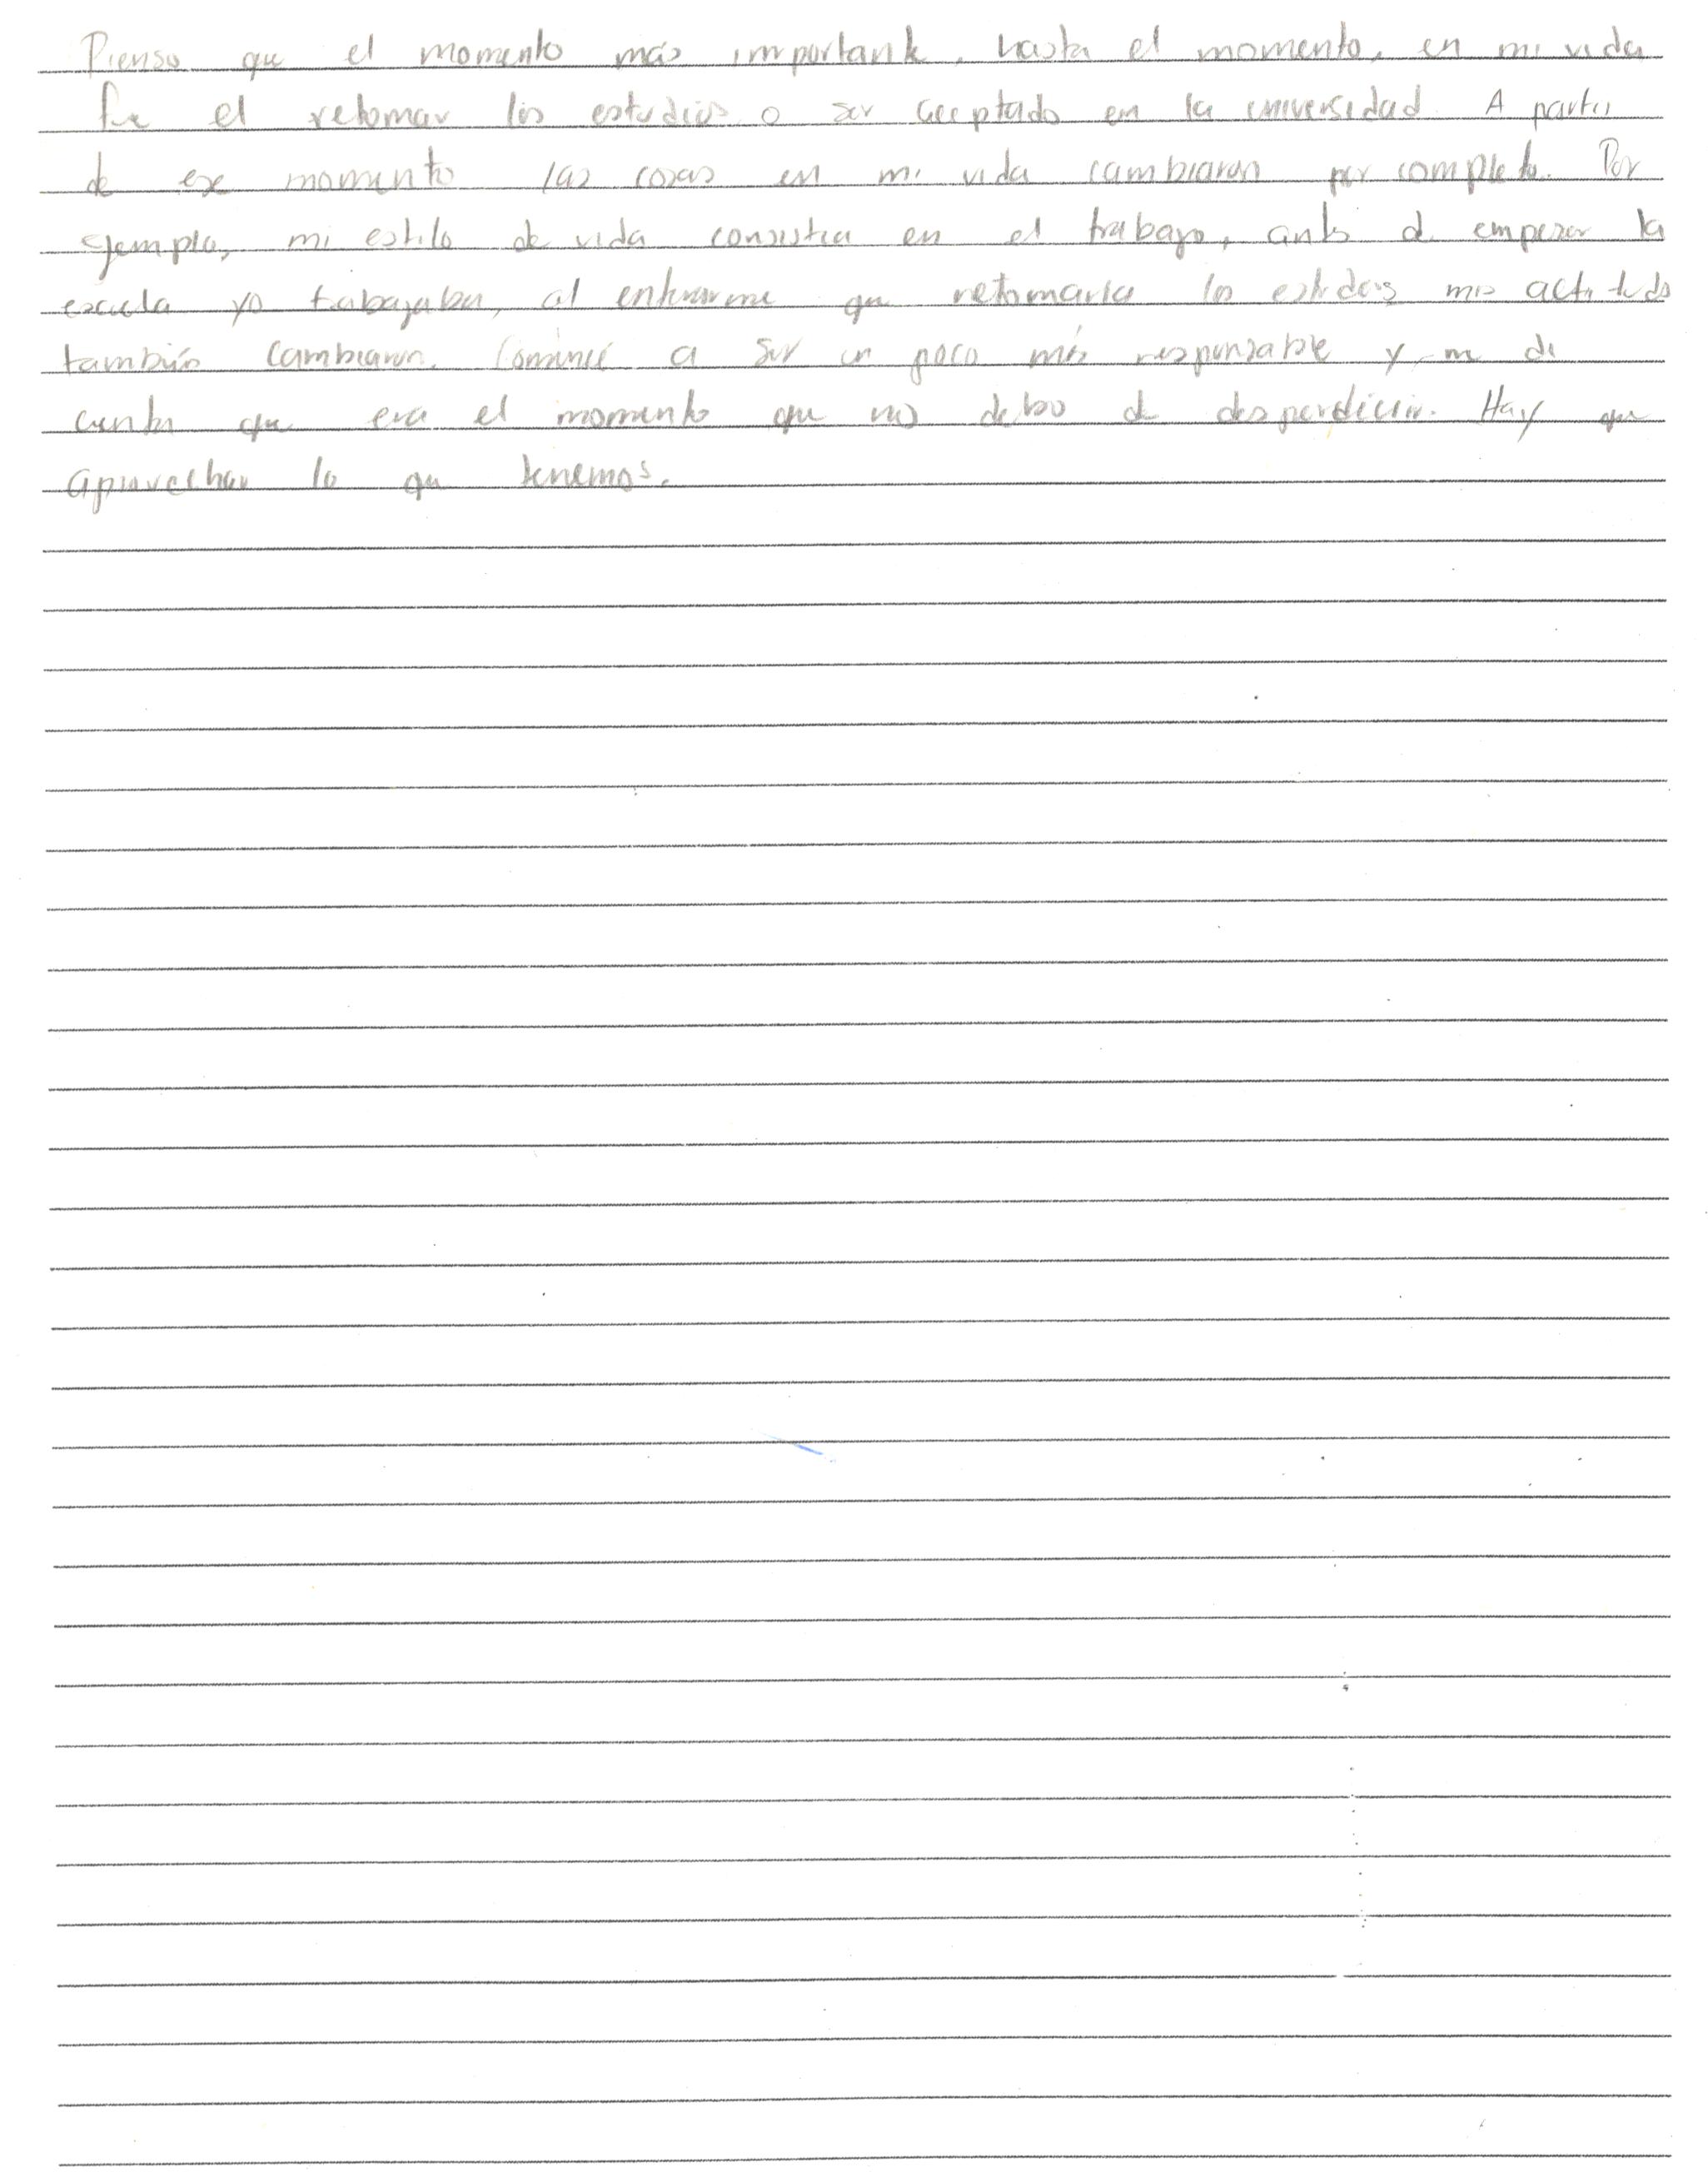 Pienso que el momento más importante, hasta el momento, en mi vida
fue el retomar los estudios o ser aceptado en la universidad. A partir
de ese momento las cosas en mi vida cambiaron por completo. Por
ejemplo, mi estilo de vida consistia en el trabajo, antes de empezar la
escuela yo trabajaba, al enterarme que retomaria los estudios mis actitudes
también cambiaron. Comencé a ser un poco más responsable y me di
cuenta que era el momento que no debo de desperdiciar. Hay que
aprovechar lo que tenemos.